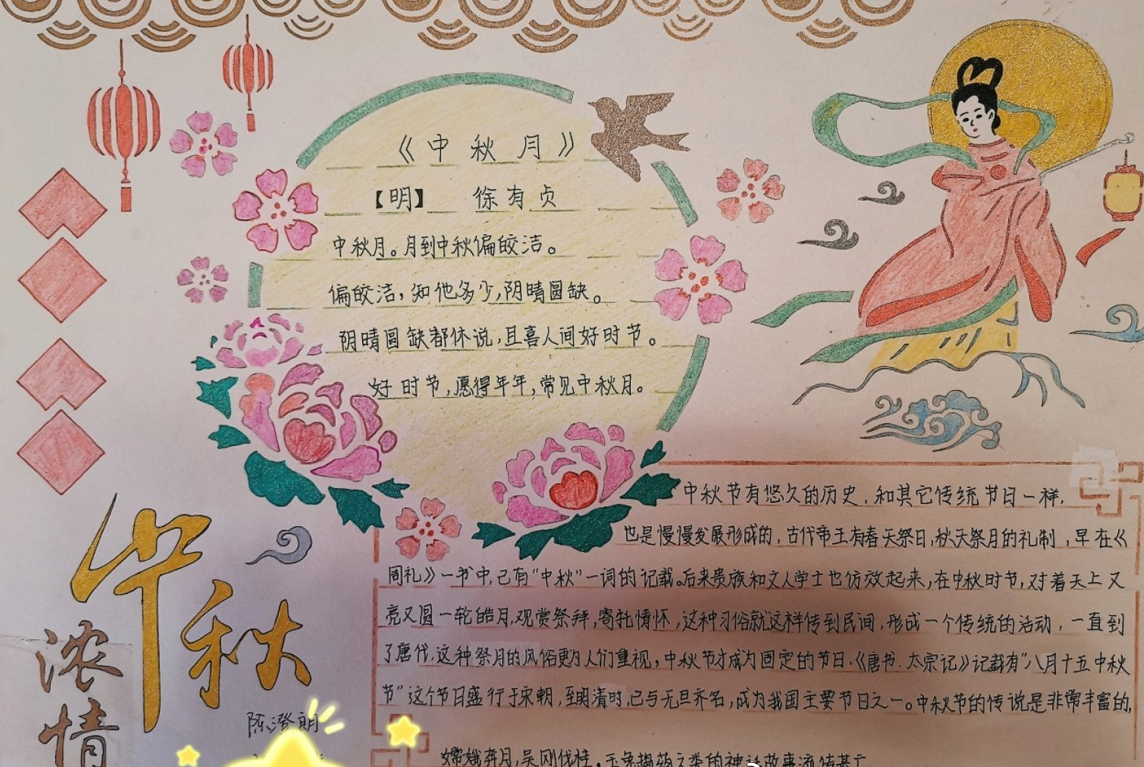 《中秋月》
【明】 徐有贞
中秋月。月到中秋偏皎洁。
偏皎洁,知他多少,阴晴圆缺。
阴晴圆缺都休说,且喜人间好时节。
好时节,愿得年年,常见中秋月。
中秋
浓情
陈澄朗
中秋节有悠久的历史,和其它传统节日一样,
也是慢慢发展形成的,古代帝王有春天祭日,秋天祭月的礼制,早在《
周礼》一书中,已有“中秋”一词的记载。后来贵族和文人学士也仿效起来,在中秋时节,对着天上又
亮又圆一轮皓月,观赏祭拜,寄托情怀,这种习俗就这样传到民间,形成一个传统的活动,一直到
了唐代,这种祭月的风俗更为人们重视,中秋节才成为固定的节日,《唐书·太宗记》记载有“八月十五中秋
节”这个节日盛行于宋朝,至明清时,已与元旦齐名,成为我国主要节日之一。中秋节的传说是非常丰富的,
嫦娥奔月,吴刚伐桂,玉兔捣药之类的神话故事流传甚广